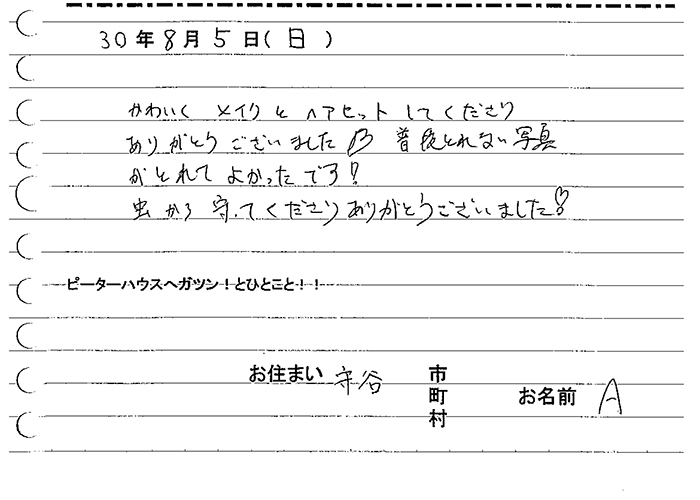 30年8月5日(日)
かわいく メイクと ヘアセット してくださり
ありがとうございました♡ 普段とれない写真
がとれてよかったです!
虫から守ってくださりありがとうございました♡!
ピーターハウスへガツン!とひとこと!!
お住まい 守谷 市
町
村
お名前 A